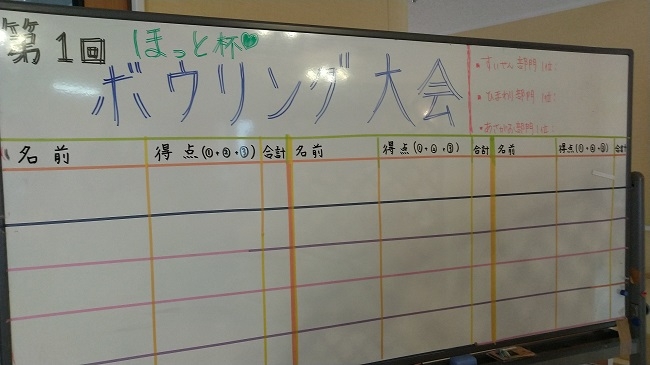 第1回 ほっと杯♥
ボウリング大会
・すいせん部門 1位：
・ひまわり部門 1位：
・あさがお部門 1位：
名前 得点(①+②+③) 合計 名前 得点(①+②+③) 合計 名前 得点(①+②+③) 合計